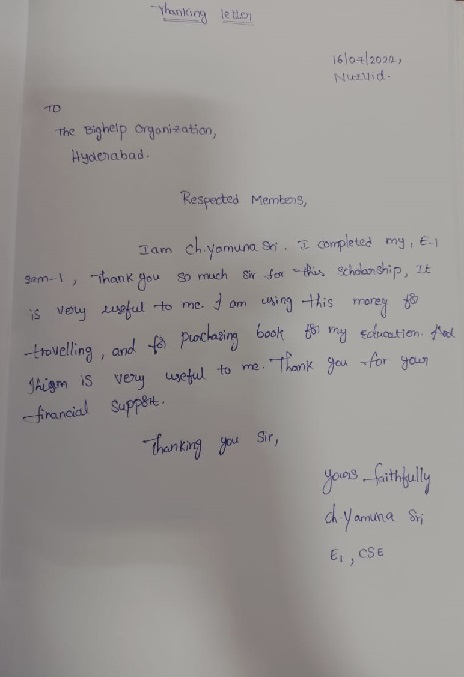 Thanking letter
16/07/2022,
Nuzvid.
TO
The Bighelp Organization,
Hyderabad.
Respected Members,
I am ch.yamuna Sri. I completed my, E-1
sem-1, Thank you so much sir for this scholarship, It
is very useful to me. I am using this money for
travelling, and for purchasing book for my education. And
is very useful to me. Thank you for your
financial support.
Thanking you Sir,
yours faithfully
ch.Yamuna Sri
E1, CSE